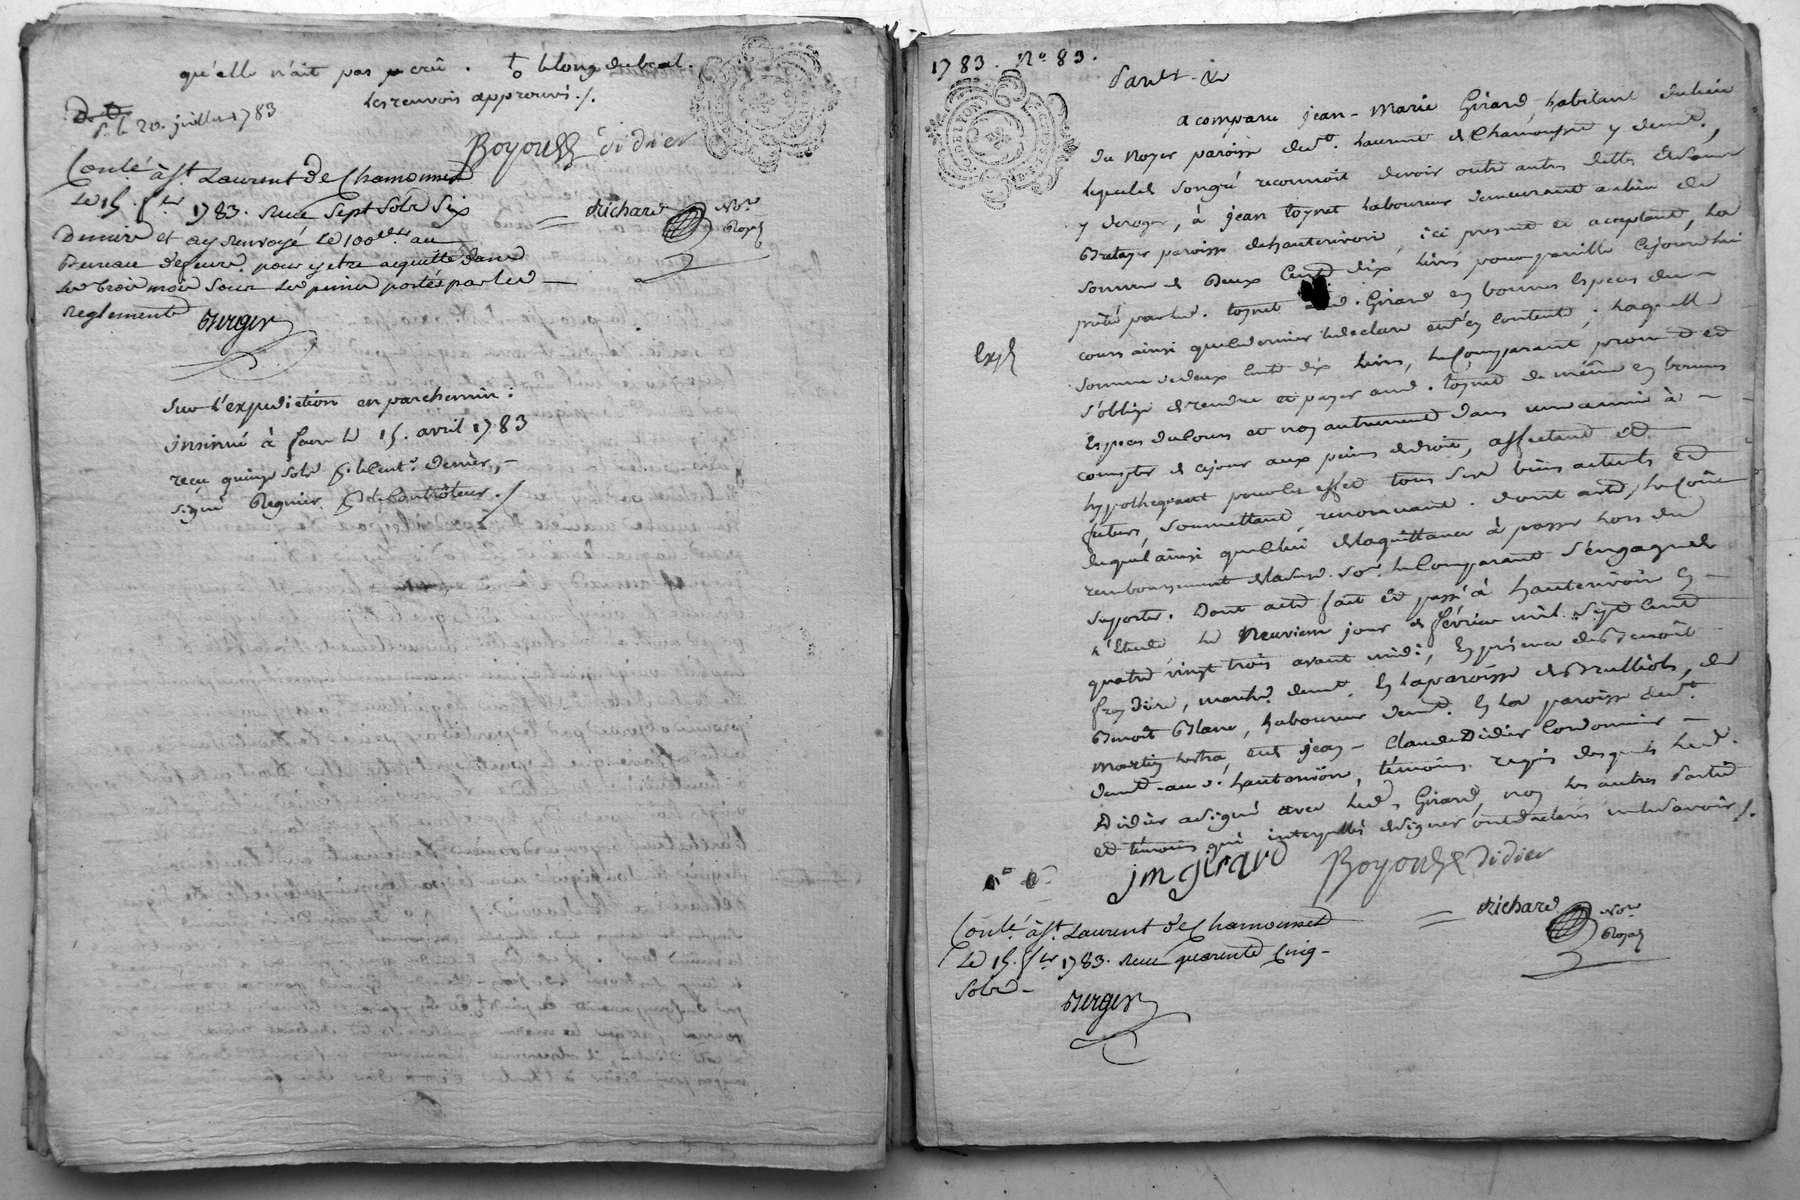 qu'elle n'ait pas crû . le long du béal.
les renvois approuvés ./.
20. juillet 1783
Boyoud Didier
Conlé à St. Laurent de Chamousset
Le 15 fer 1783. Recu Sept Sols Six
Deniers et ay renvoyé le 100e au
Bureau de feurs pour y etre acquitté dans
les trois mois sous les peines portés par les
reglements Berger
Richard Nore
Royal
Sur l'expedition en parchemin:
insinué à feurs le 15. avril 1783
reçu quinze sols deniers,
signé Regnier Contrôleur ./
1783. No. 83.
Pardt. &c
a comparu jean-Marie Girard habitant du lieu
du Noyer paroisse de St. Laurent de Chamousset y demt.,
lequel de son gré reconnoit devoir outre autres dettes et sans
y deroger, à jean laboureur demeurant au lieu de
paroisse de hauterivoire, ici present et acceptant, la
somme de deux Cent dix livres pour pareille cejourdhui
prêté par led. aud. Girard en bonnes Especes du
cours ainsi que le dernier le declare et s'en Contente; laquelle
somme de deux Cent dix livres, le Comparant promet et
s'oblige de rendre et payer aud. de même en bonnes
Especes du Cours et non autrement dans une année à
compter de cejour aux peines de droit, affectant et
hypothequant pour cet effet tous ses biens actuels et
futurs, soumettant, renonceant. dont acte, le Coût
duquel ainsi que celui de la quittance à passer lors du
remboursement de lad. Some. le Comparant s'engage de
supporter. Dont acte fait et passé à hauterivoire En
l'Etude le Neuvieme jour de fevrier mil Sept Cent
quatre vingt trois avant midi, En présence de Benoît
marchd. demt. En la paroisse de Brulliols, de
Benoît Blanc, laboureur demt. En la paroisse de St.
Martin lestra, et jean-Claude Didier Cordonnier
demt. aud. hauterivoire, témoins requis desquels led.
Didier a signé avec led. Girard, non les autres parties
et témoins qui interpellés de signer ont declarés ne le savoir ./.
Exp
jm girard Boyoud Didier
Richard Nore
Royal
Conlé à St. Laurent de Chamousset
Le 15. fer 1783. Recu quarente Cinq
Sols
Berger